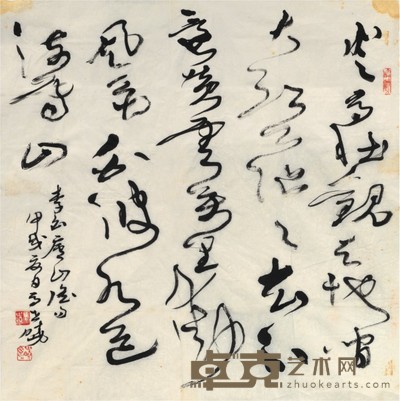 登高壯觀天地間
大江茫々去不
還黃雲萬里動
風色白波九道
流雪山
李白廬山謠句
甲戌夏日
卓克艺术网
zhuokearts.com